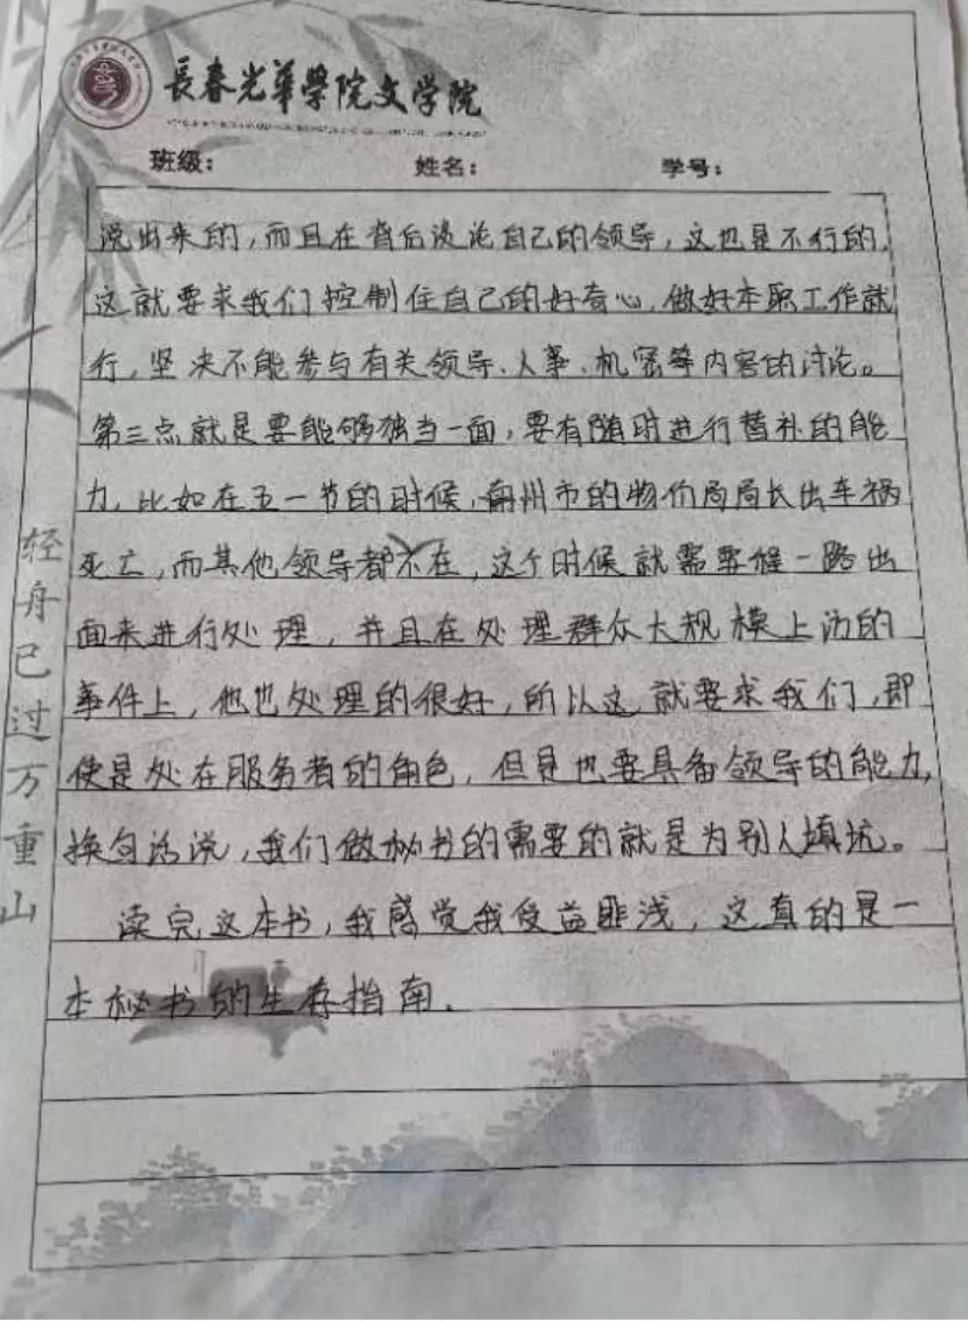 長春光華學院文学院
班级： 姓名： 学号：
说出来的，而且在背后谈论自己的领导，这也是不行的，
这就要求我们控制住自己的好奇心，做好本职工作就
行，坚决不能参与有关领导、人事、机密等内容的讨论。
第三点就是要能够独当一面，要有随时进行替补的能
力，比如在五一节的时候，南州市的物价局局长出车祸
死亡，而其他领导都不在，这个时候就需要程一路出
面来进行处理，并且在处理群众大规模上访的
事件上，他也处理的很好，所以这就要求我们，即
使是处在服务者的角色，但是也要具备领导的能力，
换句话说，我们做秘书的需要的就是为别人填坑。
读完这本书，我感觉我受益匪浅，这真的是一
本秘书的生存指南.
轻舟已过万重山